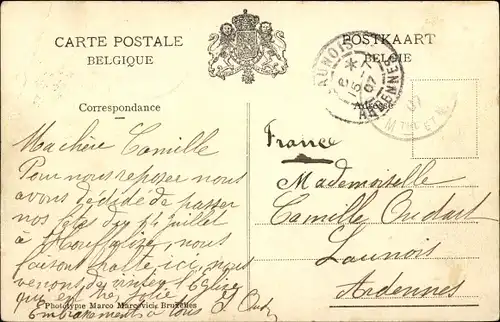 CARTE POSTALE
BELGIQUE
POSTKAART
BELGIE
LAUNOIS
6 *
5 -
07
ARDENNES
07
Correspondance
Adresse
Ma chère Camille
Pour nous reposer nous
avons décidé de passer
nos fêtes du 14 juillet
à Houffalize, nous
faisons halte ici, nous
venons de visiter l'Eglise
qui est très jolie.
Embrassement à tous
France
Mademoiselle
Camille Oudart
Launois
Ardennes
Phototypie Marco Marcovici, Bruxelles